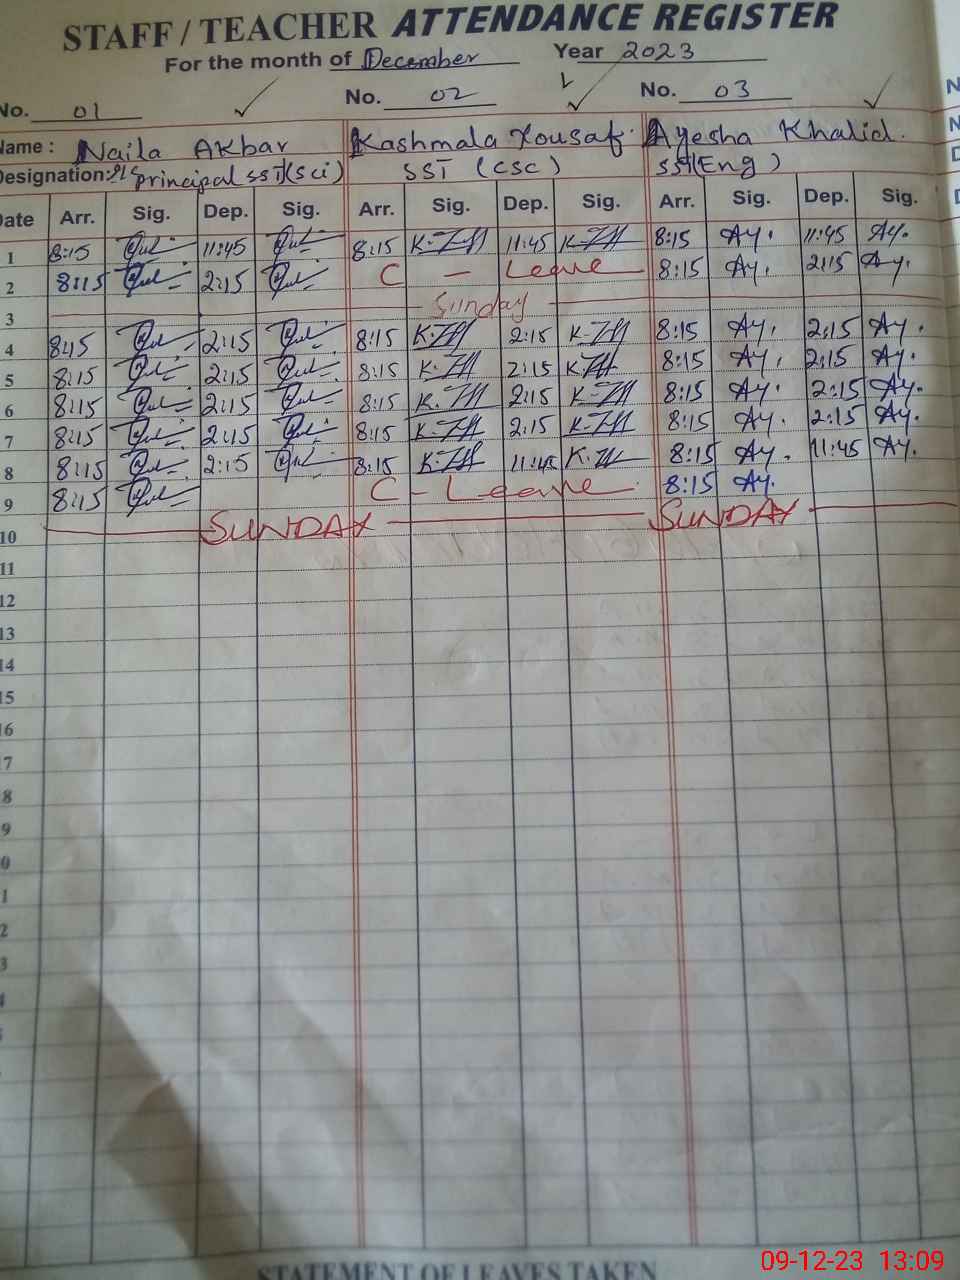 STAFF / TEACHER ATTENDANCE REGISTER
For the month of December Year 2023
No. 01 No. 02 No. 03
Name : Naila Akbar Kashmala Yousaf. Ayesha Khalid.
Designation: principal SST(sci) SST (CSC) SST(Eng)
Date Arr. Sig. Dep. Sig. Arr. Sig. Dep. Sig. Arr. Sig. Dep. Sig.
1 8:15 11:45 8:15 11:45 8:15 Ay. 11:45 Ay.
2 8:15 2:15 C - Leave 8:15 Ay. 2:15 Ay.
3 Sunday
4 8:15 2:15 8:15 2:15 8:15 Ay. 2:15 Ay.
5 8:15 2:15 8:15 2:15 8:15 Ay. 2:15 Ay.
6 8:15 2:15 8:15 2:15 8:15 Ay. 2:15 Ay.
7 8:15 2:15 8:15 2:15 8:15 Ay. 2:15 Ay.
8 8:15 2:15 8:15 11:45 8:15 Ay. 11:45 Ay.
9 8:15 C - Leave 8:15 Ay.
10 SUNDAY SUNDAY
11
12
13
14
15
16
7
8
9
0
1
2
3
STATEMENT OF LEAVES TAKEN
09-12-23 13:09